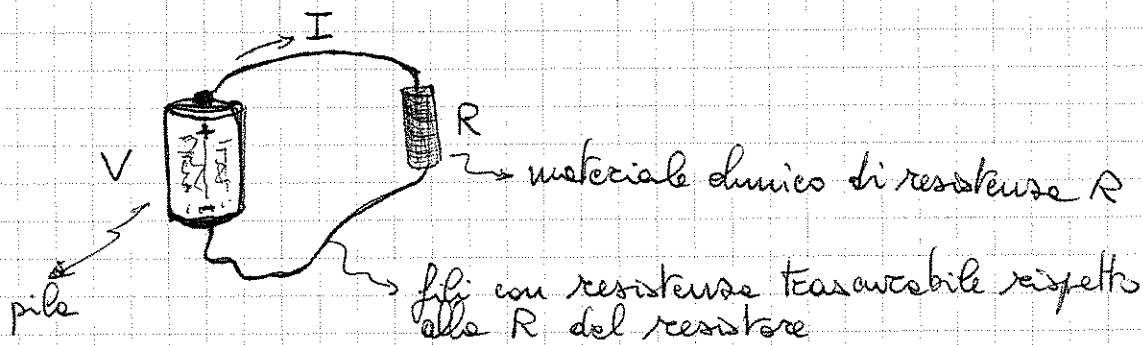 I
V
+
-
R
materiale ohmico di resistenza R
pila
fili con resistenza trascurabile rispetto
alla R del resistore